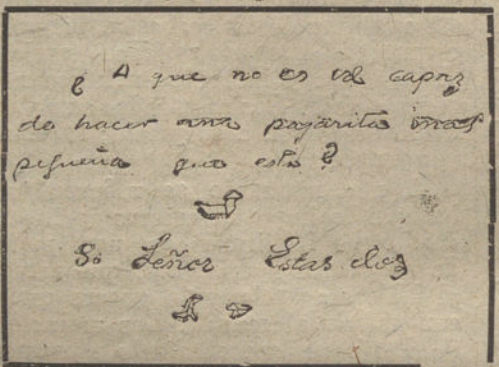 ¿A que no es vd capaz
de hacer una pajarita mas
pequeña que esta?
Si Señor Estas dos